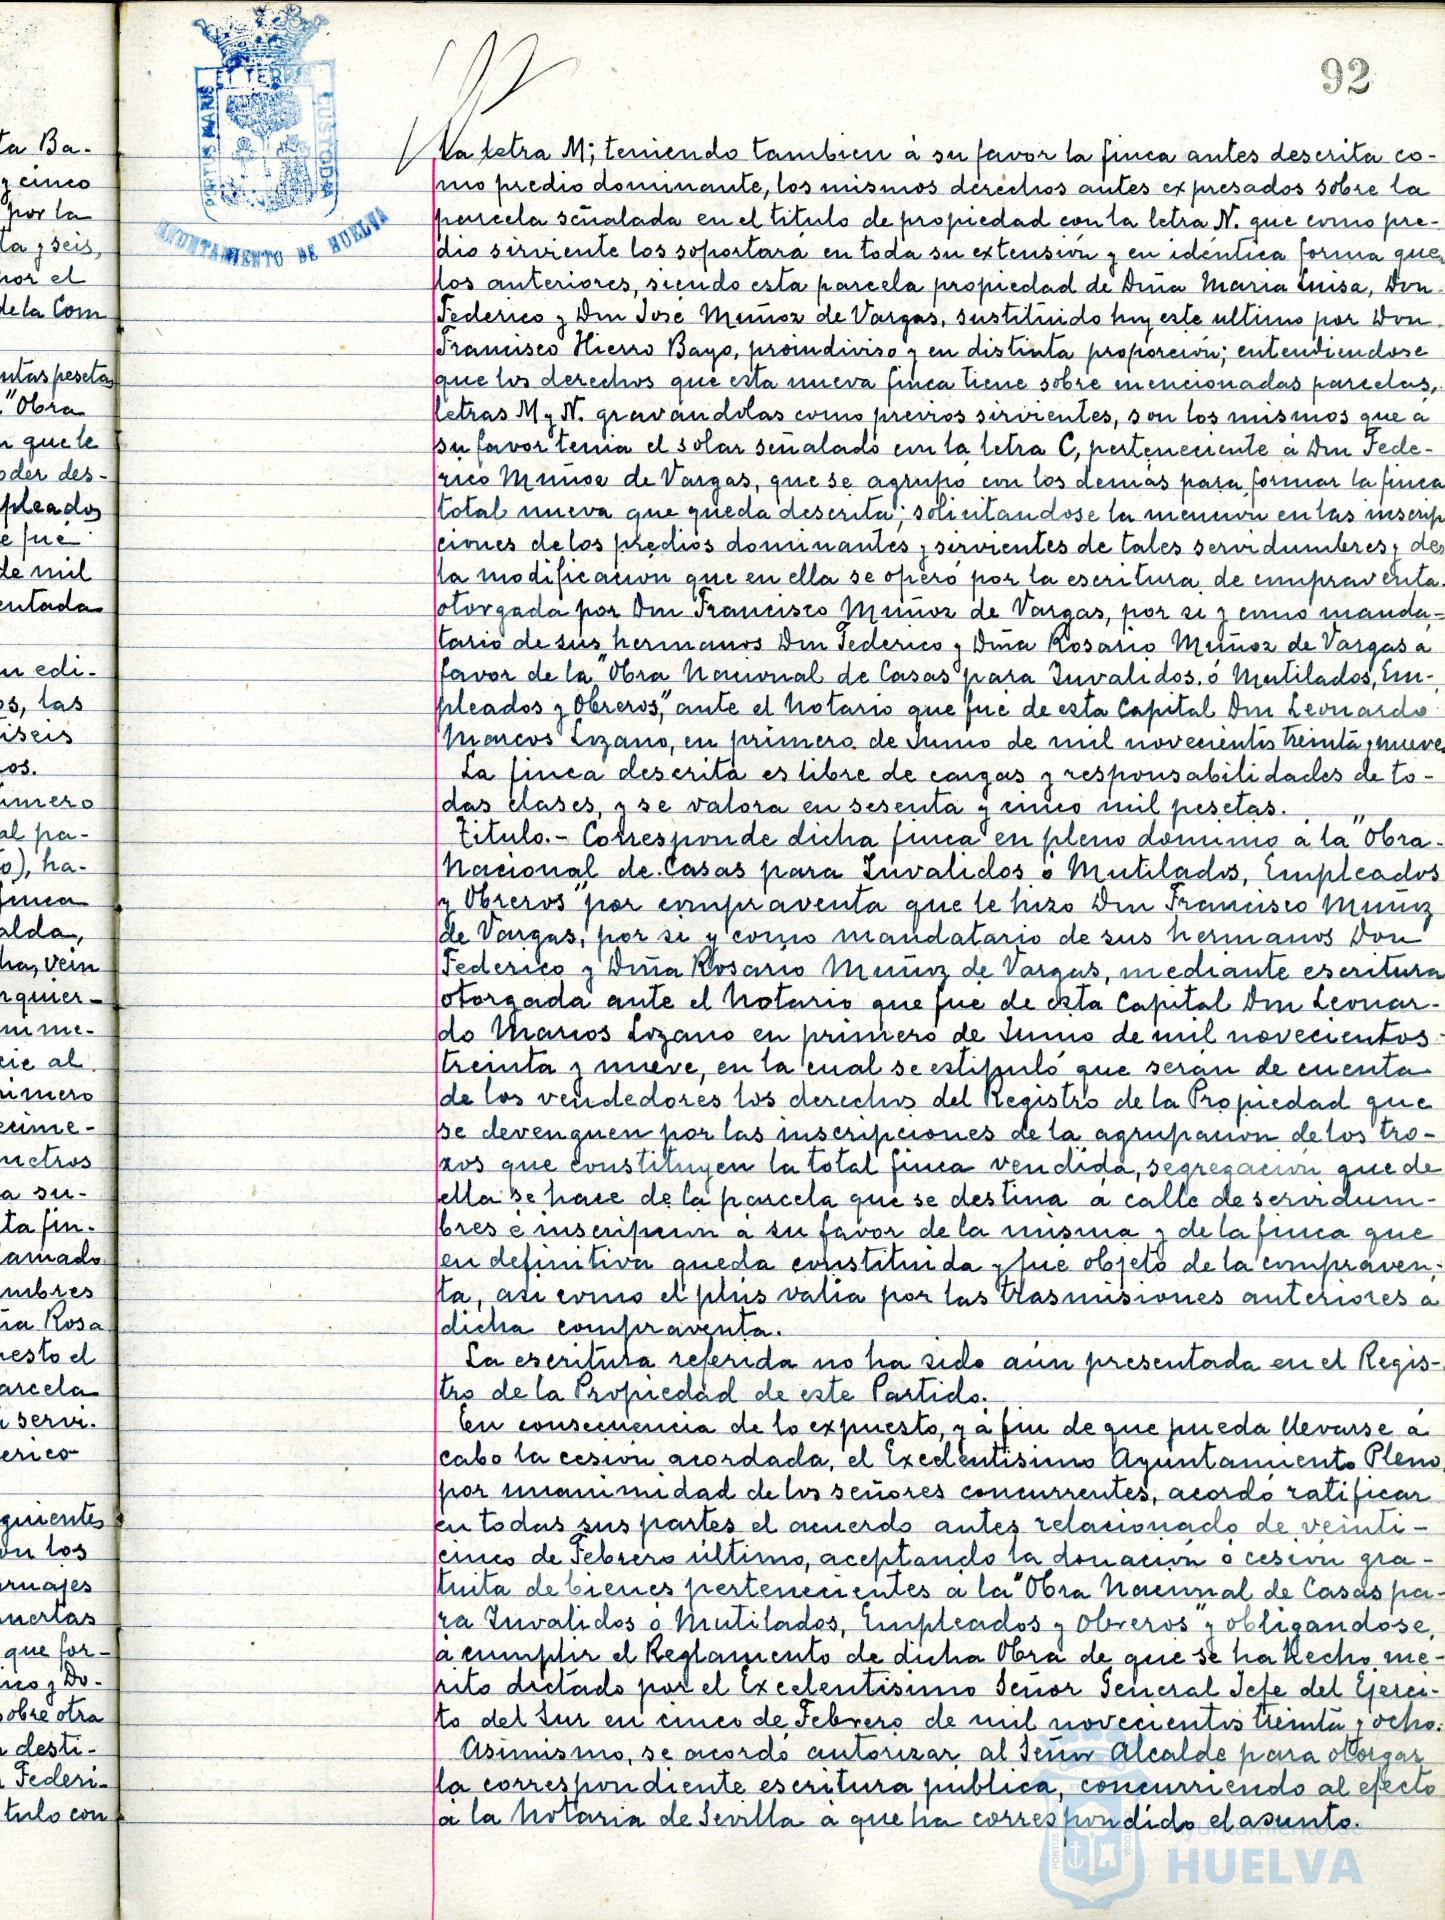 ta Ba-
y cinco
por la
ta y seis,
por el
de la Com
ntas pesetas
"Obra
n que le
oder des-
pleados
e fué
de mil
entada
n edi-
os, las
iseis
os.
úmero
al pa-
o), ha-
finca
alda,
ha, vein
nquier-
m me-
cie al
número
ecime-
metros
a su-
ta fin-
amado
umbres
ña Rosa
uesto el
arcela
n servi-
erico
guientes
on los
rruajes
puertas
que for-
rico y Do-
sobre otra
n desti-
n Federi-
tulo con
PORTUS MARIS ET TERRAE CUSTODIA
AYUNTAMIENTO DE HUELVA
92
la letra M; teniendo tambien á su favor la finca antes descrita co-
mo predio dominante, los mismos derechos antes expresados sobre la
parcela señalada en el titulo de propiedad con la letra N. que como pre-
dio sirviente los soportará en toda su extensión y en idéntica forma que
los anteriores, siendo esta parcela propiedad de Doña Maria Luisa, Don
Federico y Don José Muñoz de Vargas, sustituido hoy este ultimo por Don
Francisco Hierro Bayo, proindiviso y en distinta proporción; entendiendose
que los derechos que esta nueva finca tiene sobre mencionadas parcelas,
letras M y N. gravandolas como previos sirvientes, son los mismos que á
su favor tenia el solar señalado con la letra C, perteneciente á Don Fede-
rico Muñoz de Vargas, que se agrupó con los demás para formar la finca
total nueva que queda descrita; solicitandose la mención en las inscrip
ciones de los predios dominantes y sirvientes de tales servidumbres y de
la modificación que en ella se operó por la escritura de compraventa
otorgada por Don Francisco Muñoz de Vargas, por si y como manda-
tario de sus hermanos Don Federico y Doña Rosario Muñoz de Vargas á
favor de la "Obra Nacional de Casas para Invalidos ó Mutilados, Em-
pleados y Obreros", ante el Notario que fué de esta Capital Don Leonardo
Marcos Lozano, en primero de Junio de mil novecientos treinta y nueve.
La finca descrita es libre de cargas y responsabilidades de to-
das clases, y se valora en sesenta y cinco mil pesetas.
Titulo.- Corresponde dicha finca en pleno dominio á la "Obra
Nacional de Casas para Invalidos ó Mutilados, Empleados
y Obreros" por compraventa que le hizo Don Francisco Muñoz
de Vargas, por si y como mandatario de sus hermanos Don
Federico y Doña Rosario Muñoz de Vargas, mediante escritura
otorgada ante el Notario que fué de esta Capital Don Leonar-
do Marcos Lozano en primero de Junio de mil novecientos
treinta y nueve, en la cual se estipuló que serán de cuenta
de los vendedores los derechos del Registro de la Propiedad que
se devenguen por las inscripciones de la agrupación de los tro-
zos que constituyen la total finca vendida, segregación que de
ella se hace de la parcela que se destina á calle de servidum-
bres é inscripcion á su favor de la misma y de la finca que
en definitiva queda constituida y fué objeto de la compraven-
ta, asi como el plus valia por las trasmisiones anteriores á
dicha compraventa.
La escritura referida no ha sido aún presentada en el Regis-
tro de la Propiedad de este Partido.
En consecuencia de lo expuesto, y á fin de que pueda llevarse á
cabo la cesión acordada, el Excelentisimo Ayuntamiento Pleno,
por unanimidad de los señores concurrentes, acordó ratificar
en todas sus partes el acuerdo antes relacionado de veinti-
cinco de Febrero último, aceptando la donación ó cesión gra-
tuita de bienes pertenecientes á la "Obra Nacional de Casas pa-
ra Invalidos ó Mutilados, Empleados y Obreros" y obligandose,
á cumplir el Reglamento de dicha Obra de que se ha hecho mé-
rito dictado por el Excelentisimo Señor General Jefe del Ejerci-
to del Sur en cinco de Febrero de mil novecientos treinta y ocho.
Asimismo, se acordó autorizar al Señor Alcalde para otorgar
la correspondiente escritura pública, concurriendo al efecto
á la Notaria de Sevilla á que ha correspondido el asunto.
Ayuntamiento de
HUELVA